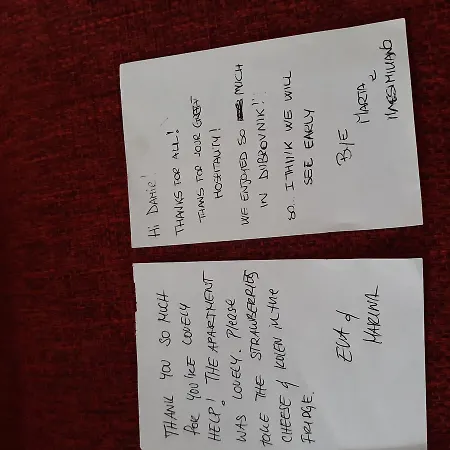 Hi DAMIR!
THANKS FOR ALL!
THANS FOR YOUR GREAT
HOSPITALITY!
WE ENJOYED SO MUCH
IN DUBROVNIK!!
SO.. I THINK WE WILL
SEE EARLY
BYE
MARTA
THANK YOU SO MUCH
FOR YOU'RE LOVELY
HELP! THE APARTMENT
WAS LOVELY. Please
take THE STRAWBERRIES
CHEESE & in the
FRIDGE.
EVA &
MARINA